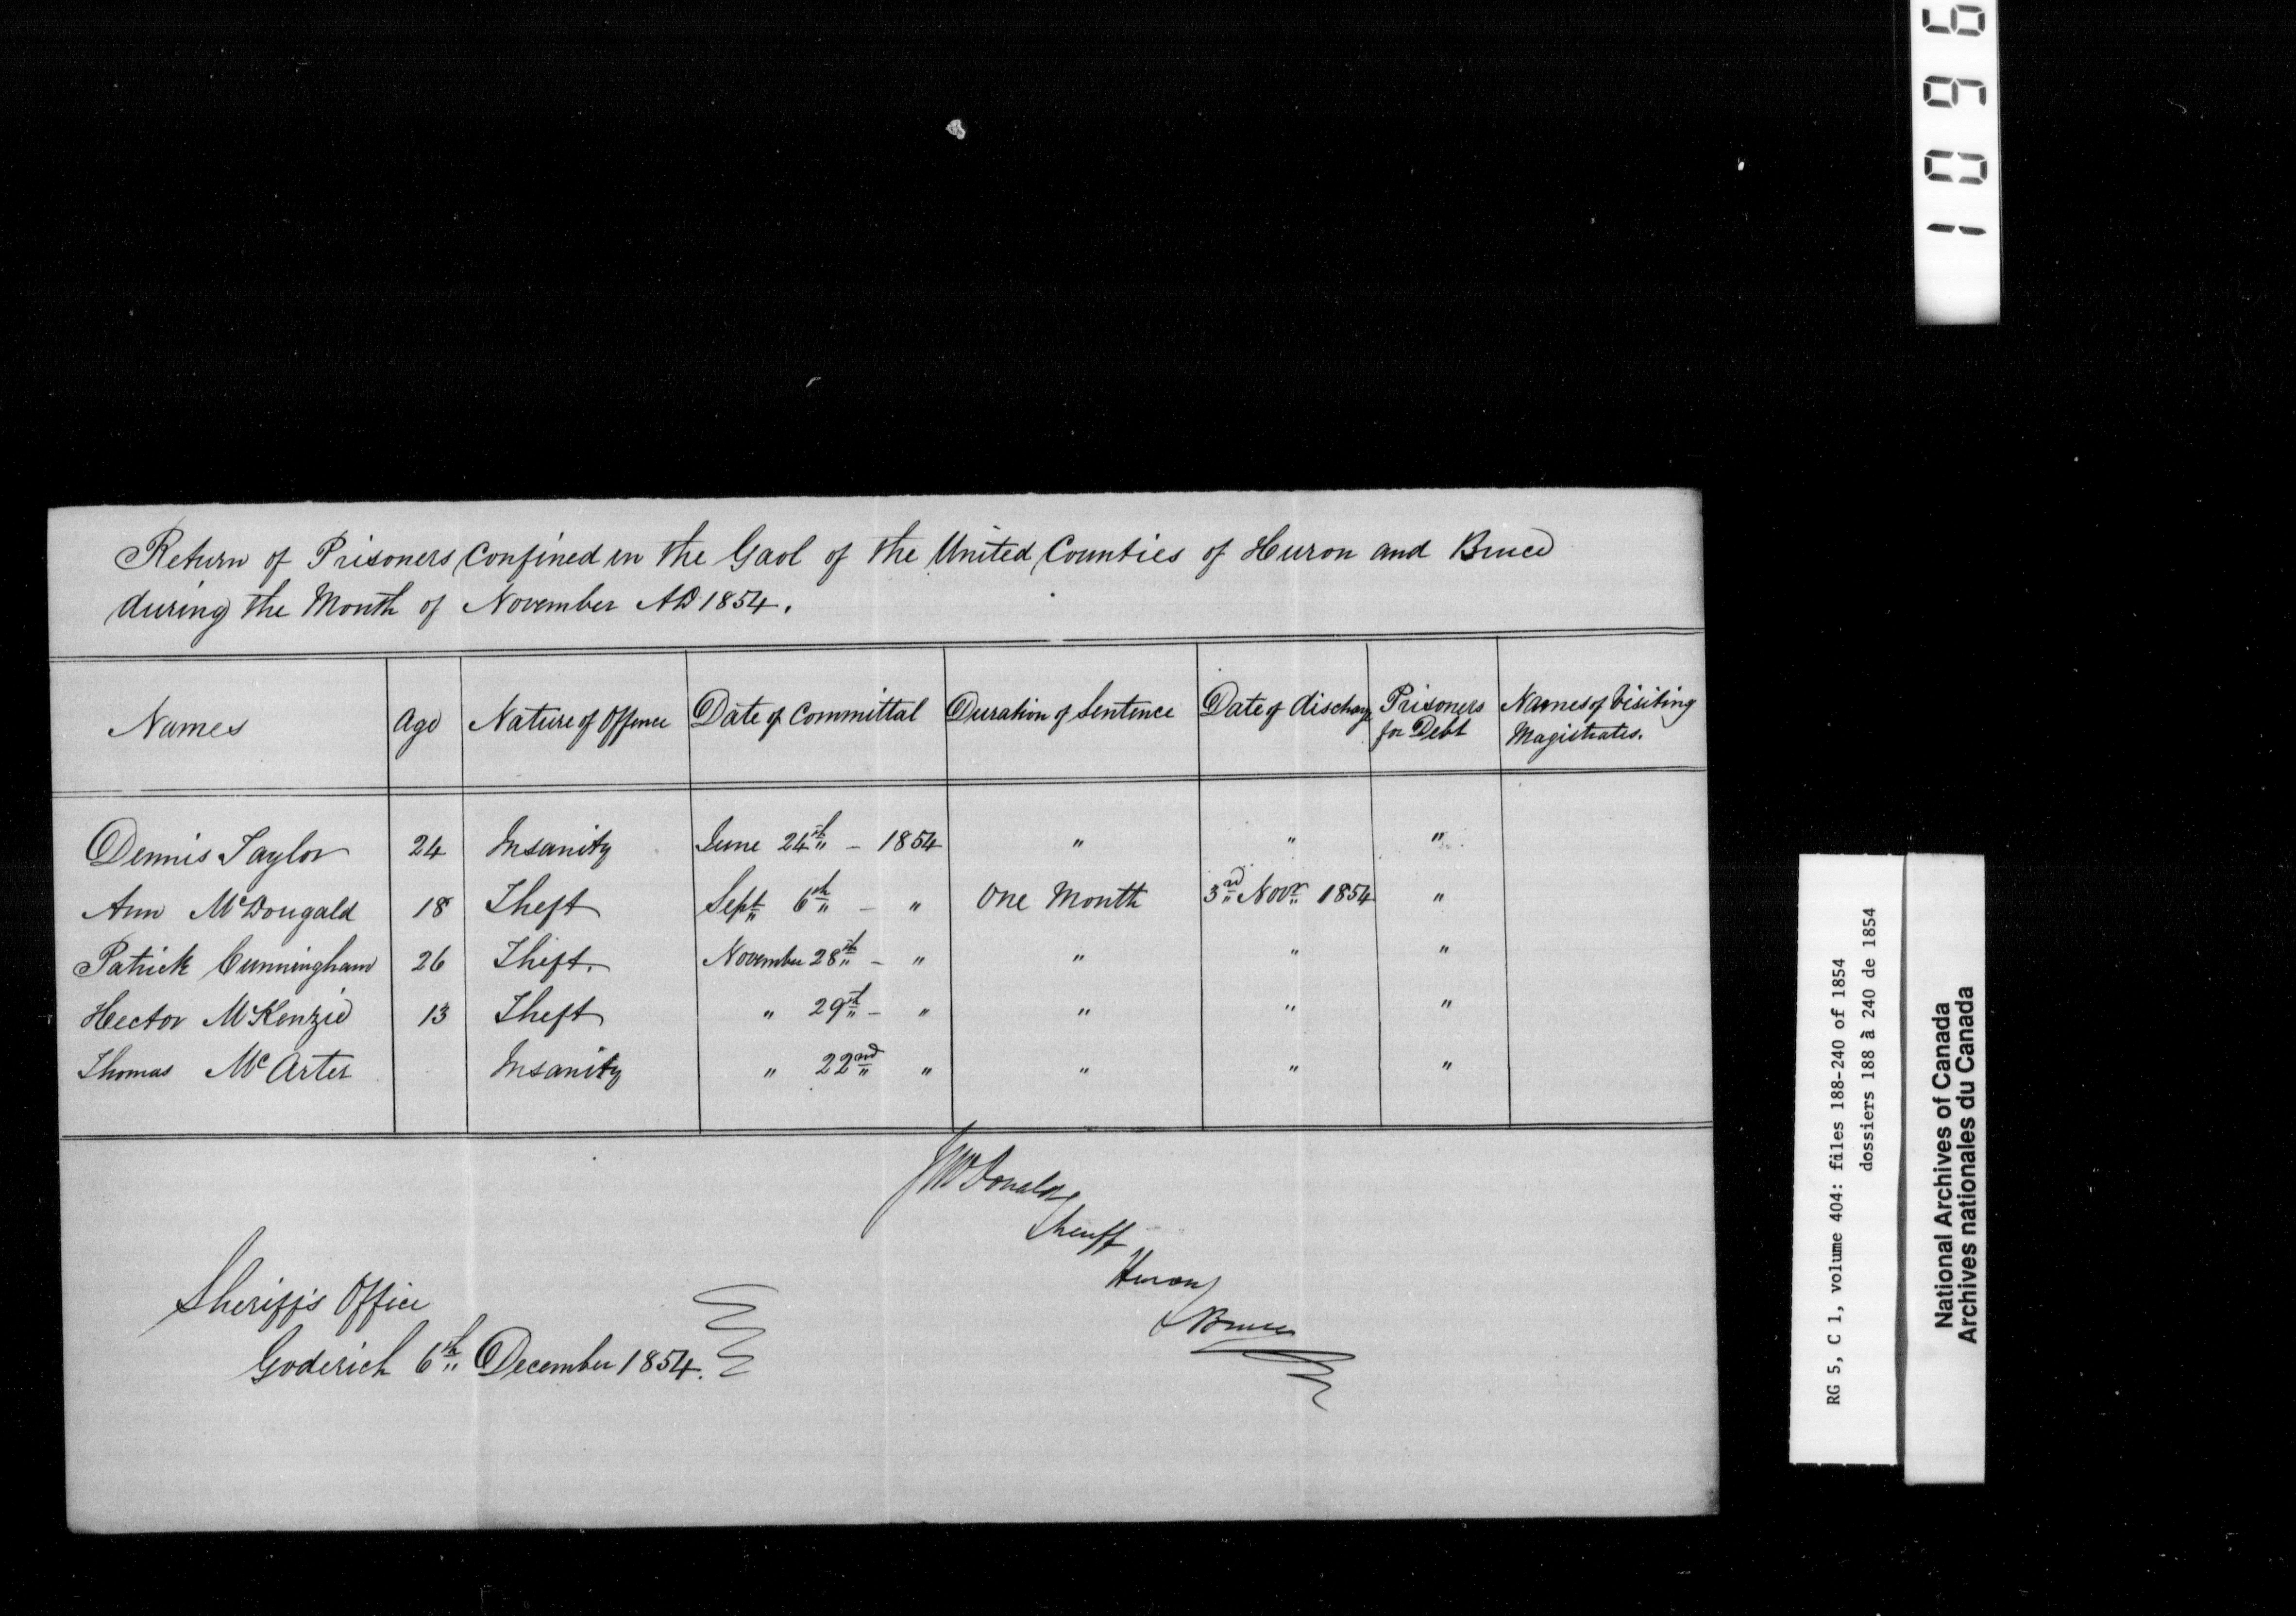 1096
Return of Prisoners Confined in the Gaol of the United Counties of Huron and Bruce
during the Month of November AD 1854.
Names Age Nature of Offence Date of Committal Duration of Sentence Date of discharge Prisoners for Debt Names of Visiting Magistrates.
Dennis Taylor 24 Insanity June 24th - 1854 " " "
Ann McDougald 18 Theft Sept 6th - " One Month 3rd Novr 1854 "
Patrick Cunningham 26 Theft. November 28th - " " " "
Hector McKenzie 13 Theft " 29th - " " " "
Thomas McArter Insanity " 22nd " " " "
J McDonald
Sheriff
Huron
& Bruce
Sheriff's Office
Goderich 6th December 1854.
RG 5, C 1, volume 404: files 188-240 of 1854
dossiers 188 à 240 de 1854
National Archives of Canada
Archives nationales du Canada